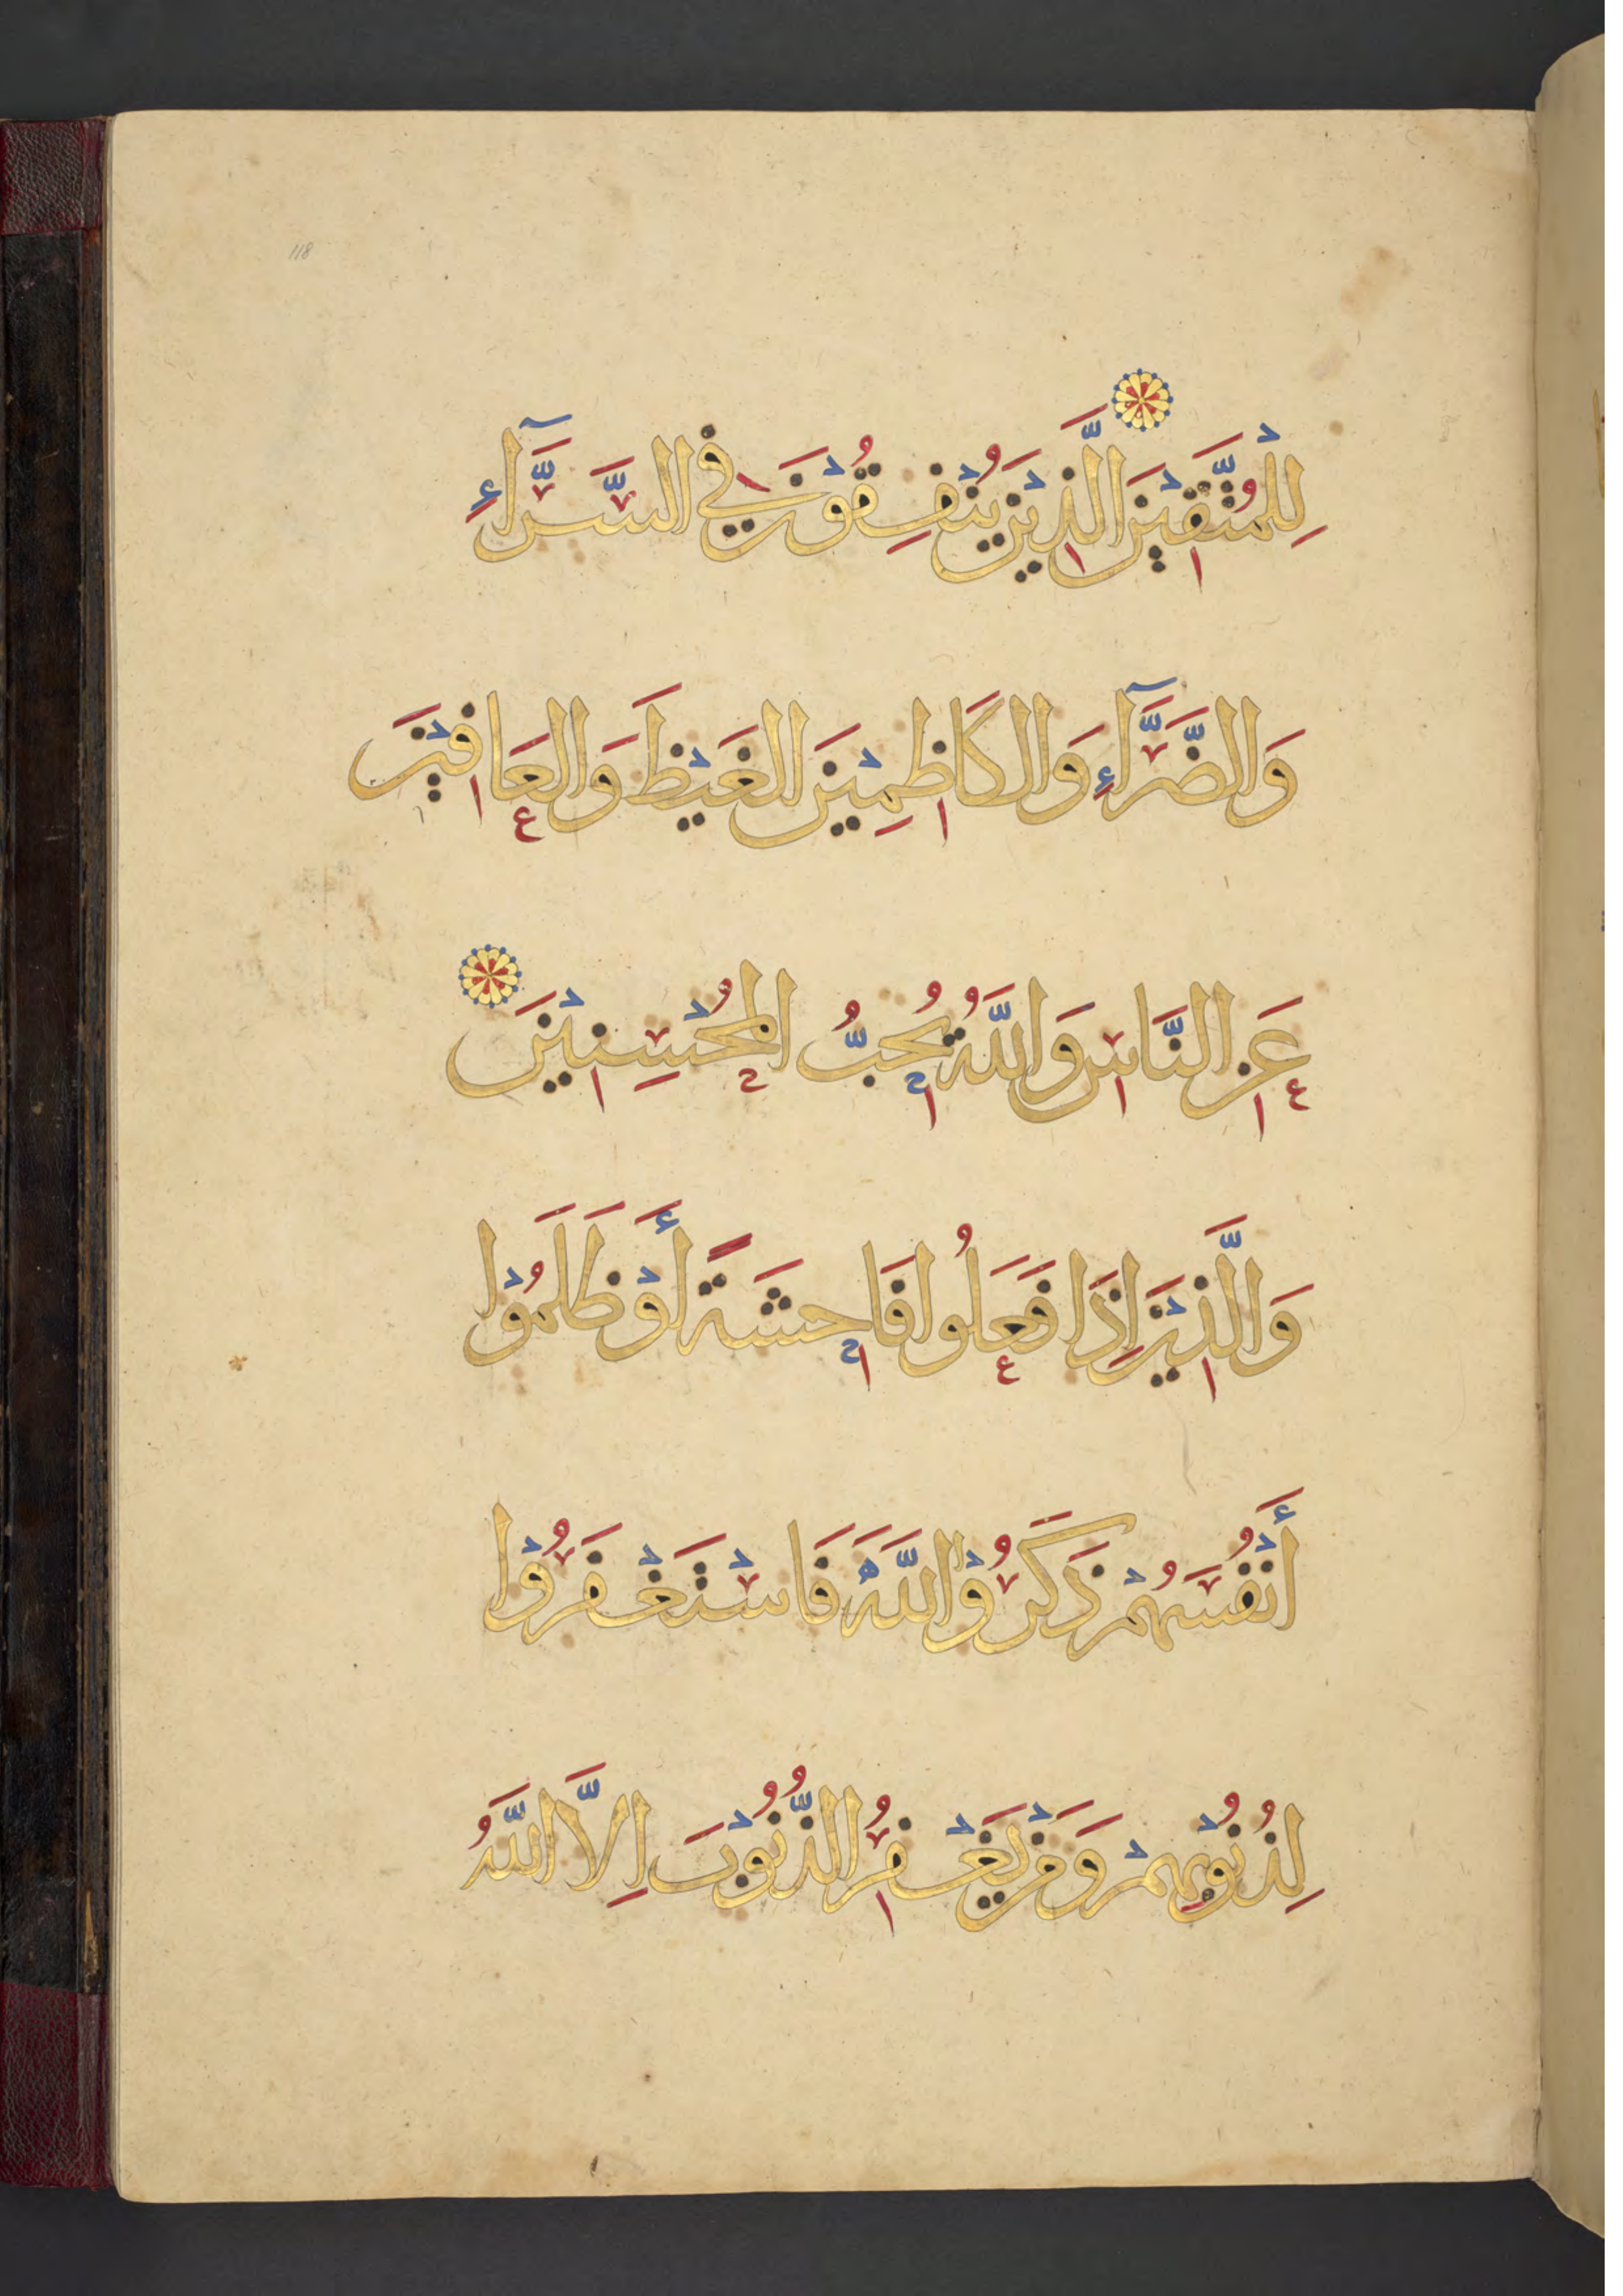 118
لِلْمُتَّقِيْنَ الَّذِيْنَ يُنْفِقُوْنَ فِي السَّرَّآءِ
وَالضَّرَّآءِ وَالكَاظِمِيْنَ الغَيْظَ وَالعَافِيْنَ
عَنِ النَّاسِ وَاللَّهُ يُحِبُّ المُحْسِنِيْنَ
وَالَّذِيْنَ اِذَا فَعَلُوا فَاحِشَةً أَوْ ظَلَمُوْا
أَنْفُسَهُمْ ذَكَرُوْا اللَّهَ فَاسْتَغْفَرُوْا
لِذُنُوْبِهِمْ وَمَنْ يَغْفِرُ الذُّنُوْبَ اِلَّا اللَّهُ